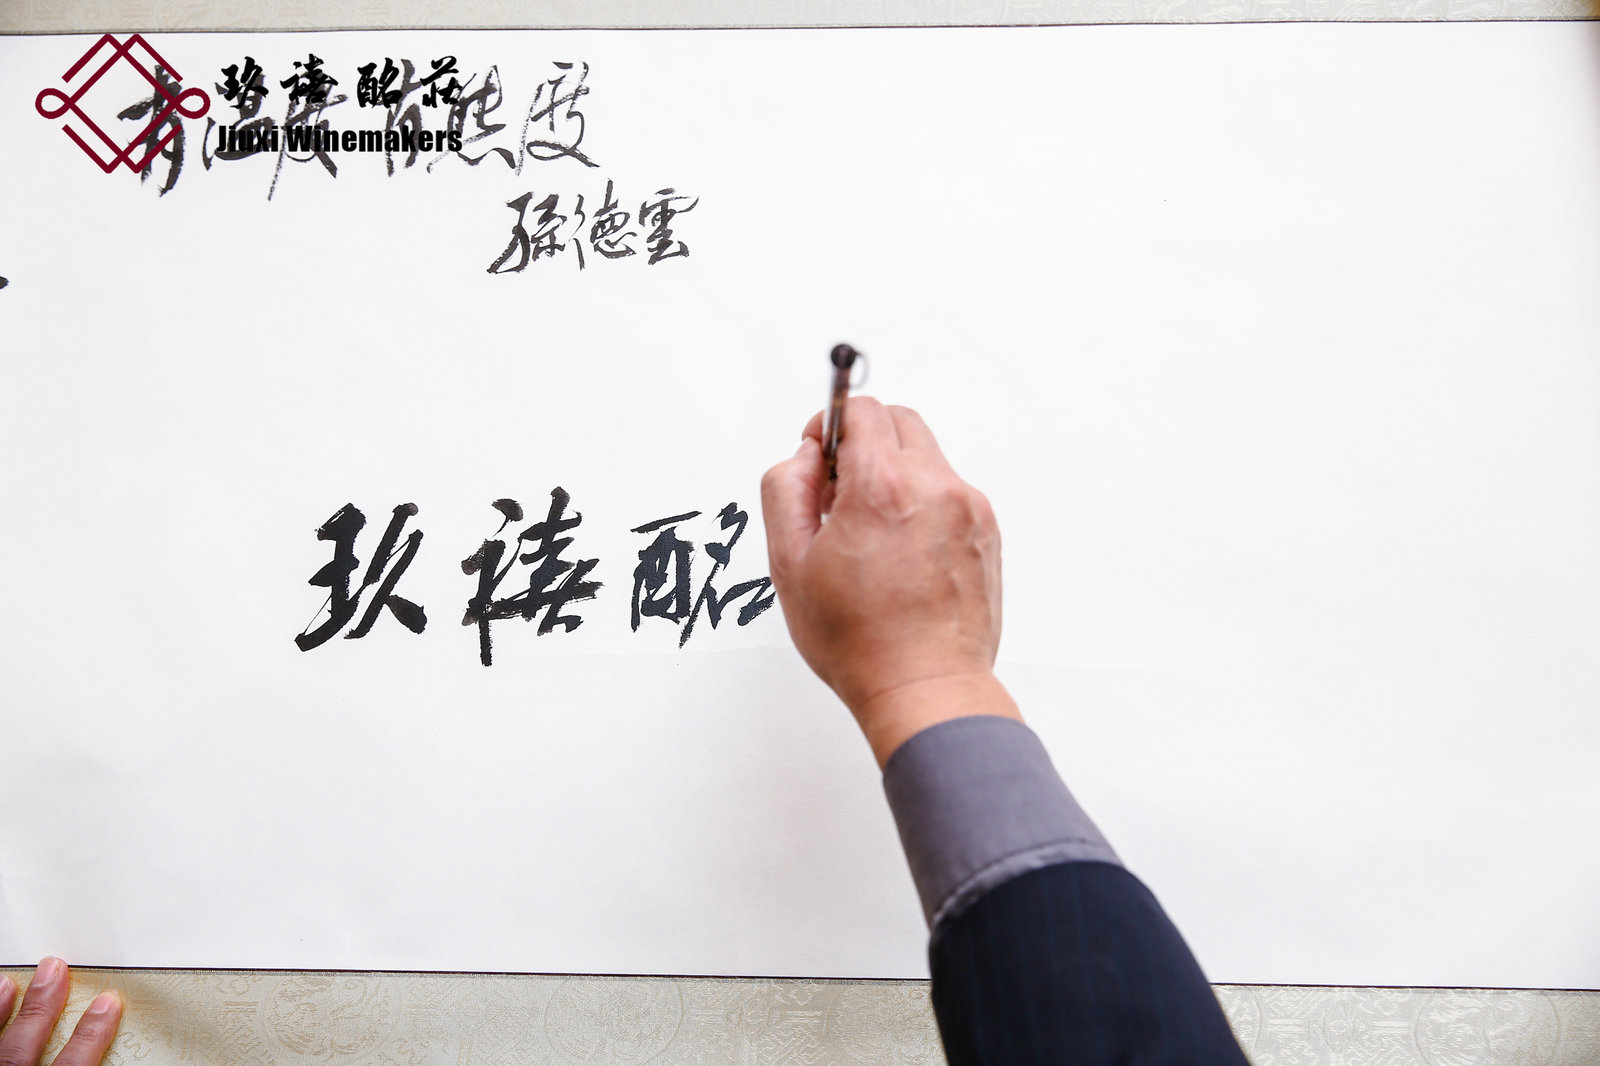 玖禧酩莊
Jiuxi Winemakers
有温度有態度
孫德雲
玖禧酩